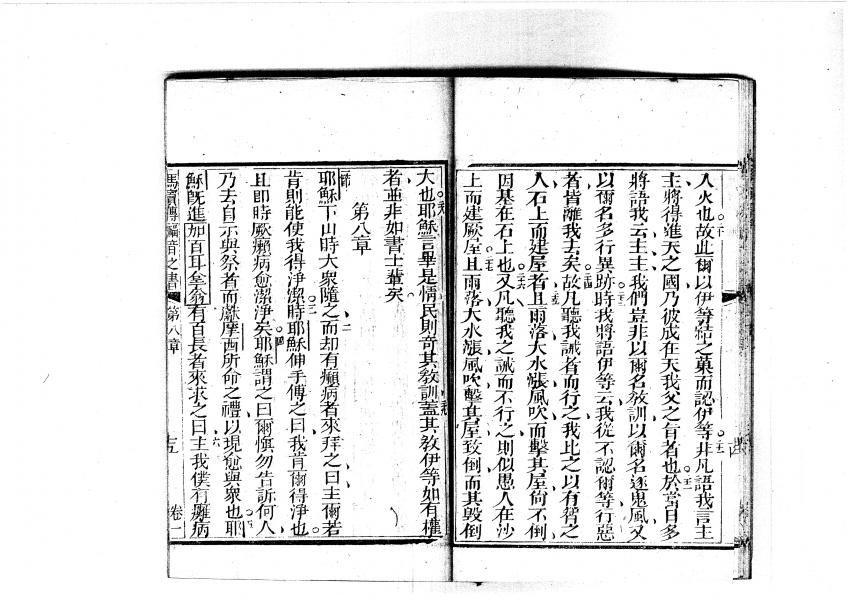 入火也故此爾以伊等結之菓而認伊等非凡語我言主
主將得進天之國乃彼成在天我父之旨者也於當日多
將語我云主主我們豈非以爾名教訓以爾名逐鬼風又
以爾名多行異跡時我將語伊等云我從不認爾等行惡
者皆離我去矣故凡聽我誡者而行之我比之以有智之
人石上而建屋者且雨落大水漲風吹而擊其屋尙不倒
因基在石上也又凡聽我之誡而不行之則似愚人在沙
上而建厥屋且雨落大水漲風吹擊其屋致倒而其毀倒
大也耶穌言畢是情民則奇其教訓蓋其教伊等如有權
者並非如書士輩矣
第八章
耶穌下山時大衆隨之而却有癩病者來拜之曰主爾若
肯則能使我得淨潔時耶穌伸手傅之曰我肯爾得淨也
且卽時厥癩病愈潔淨矣耶穌謂之曰爾愼勿告訴何人
乃去自示與祭者而獻摩西所命之禮以現愈與衆也耶
穌旣進加百耳拿翁有百長者來求之曰主我僕有癱病
馬竇傳福音之書 第八章 五 卷一